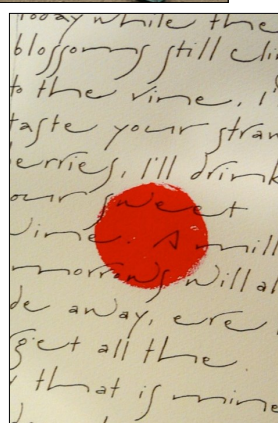 Today while the
blossoms still clin
to the vine, I'
taste your stran
erries, I'll drink
our sweet
wine. A mill
morrows will al
de away, ere
get all the
that is mine